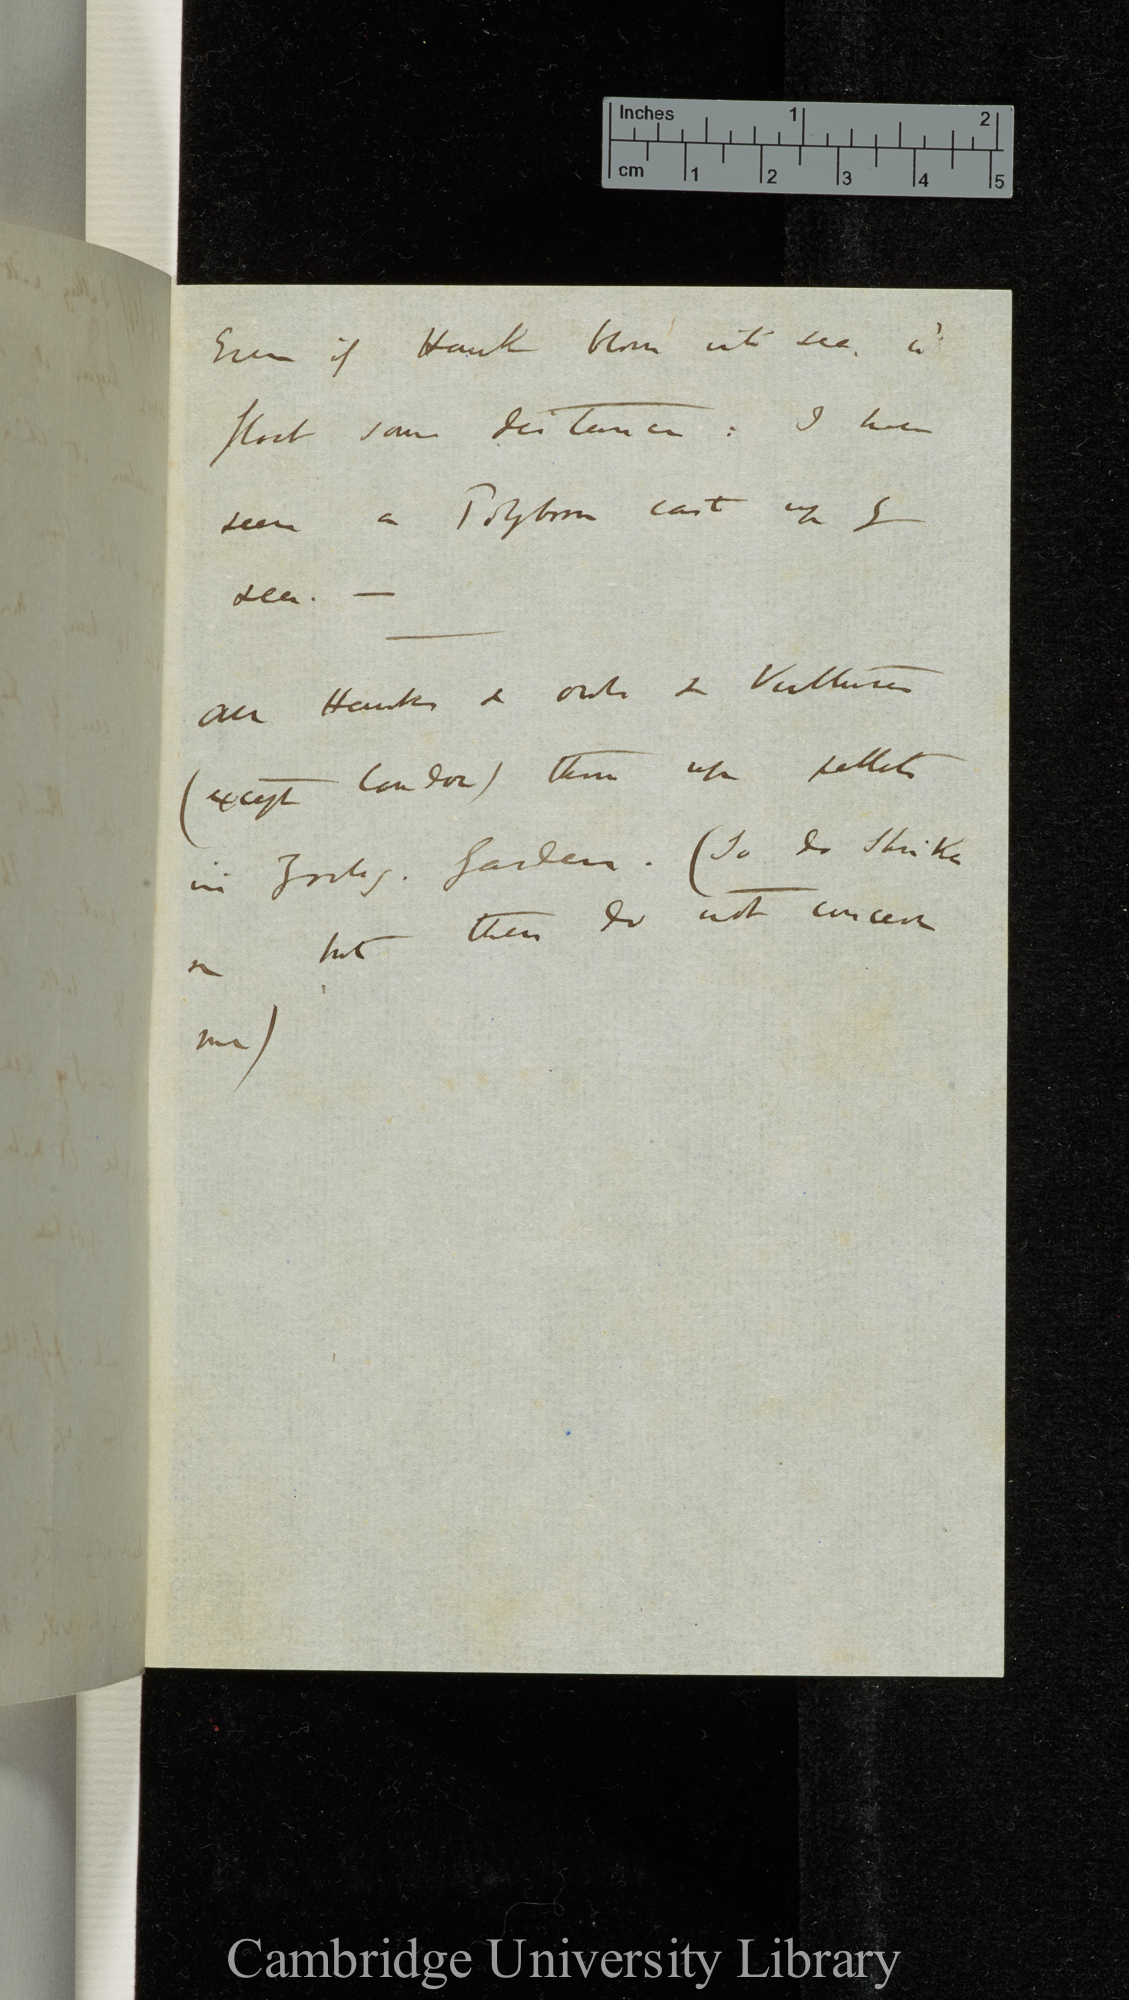 Inches 1 2
cm 1 2 3 4 5
Even if Hawk blown into sea. wd
float some distance : I have
seen a Polyborus cast up by
sea. —
All Hawks & owls & Vultures
(except Condor) throw up pellets
in Zoolog. Gardens. (So do Shrikes
but these do not concern
me)
Cambridge University Library